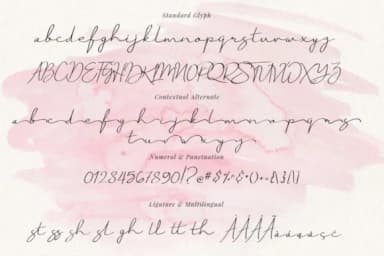 Standard Glyph
abcdefghijklmnopqrstuvwxyz
ABCDEFGHIJKLMNOPQRSTUVWXYZ
Contextual Alternate
abcdefghijklmnopqrs
tuvwxyz
Numeral & Punctuation
01234567890!?@#$%
Ligature & Multilingual
st sz sh sl gh il tt th